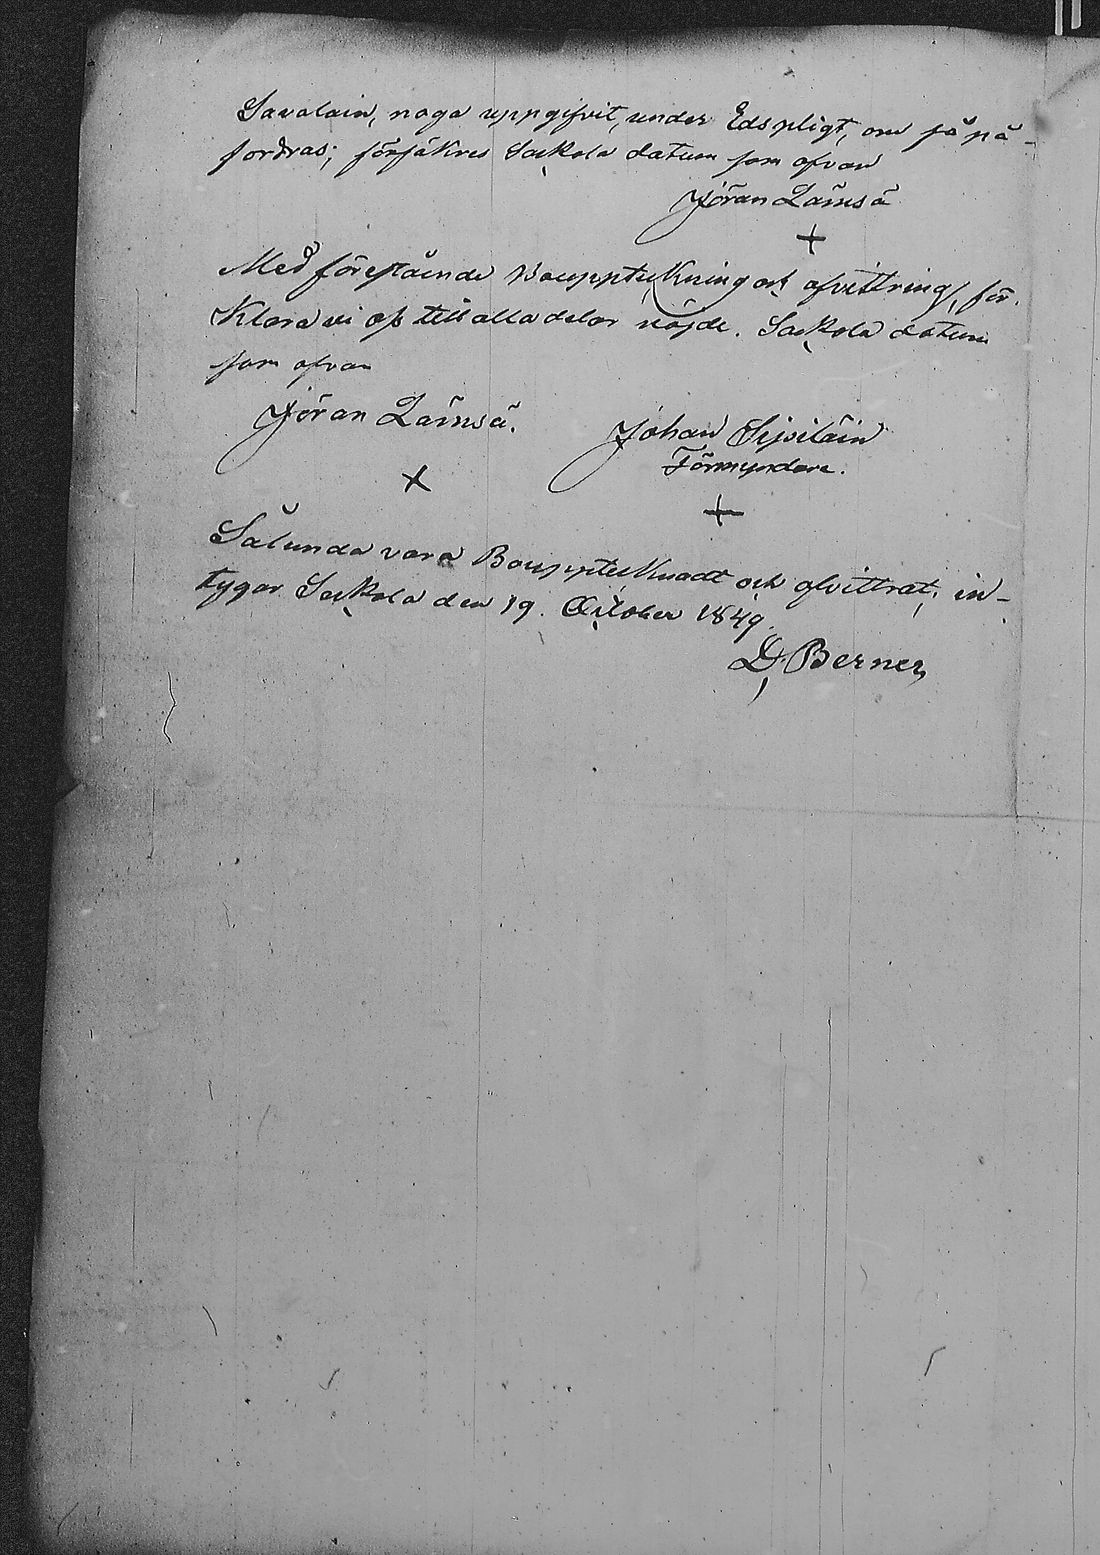 Savalain, noga uppgifvit, under Eds pligt, om så på-
fordras; försäkras Sackola datum som ofvan
Jöran Lämsä
+
Med förestående Bouppteckning och afvittring, för-
klara vi oss till alla delar nöjde. Sackola datum
som ofvan
Jöran Lämsä. Johan Sipiläin
Förmyndare.
X +
Sålunda vara Boupptecknadt och afvittrat, in-
tygar Sackola den 19. October 1849.
D. Berner